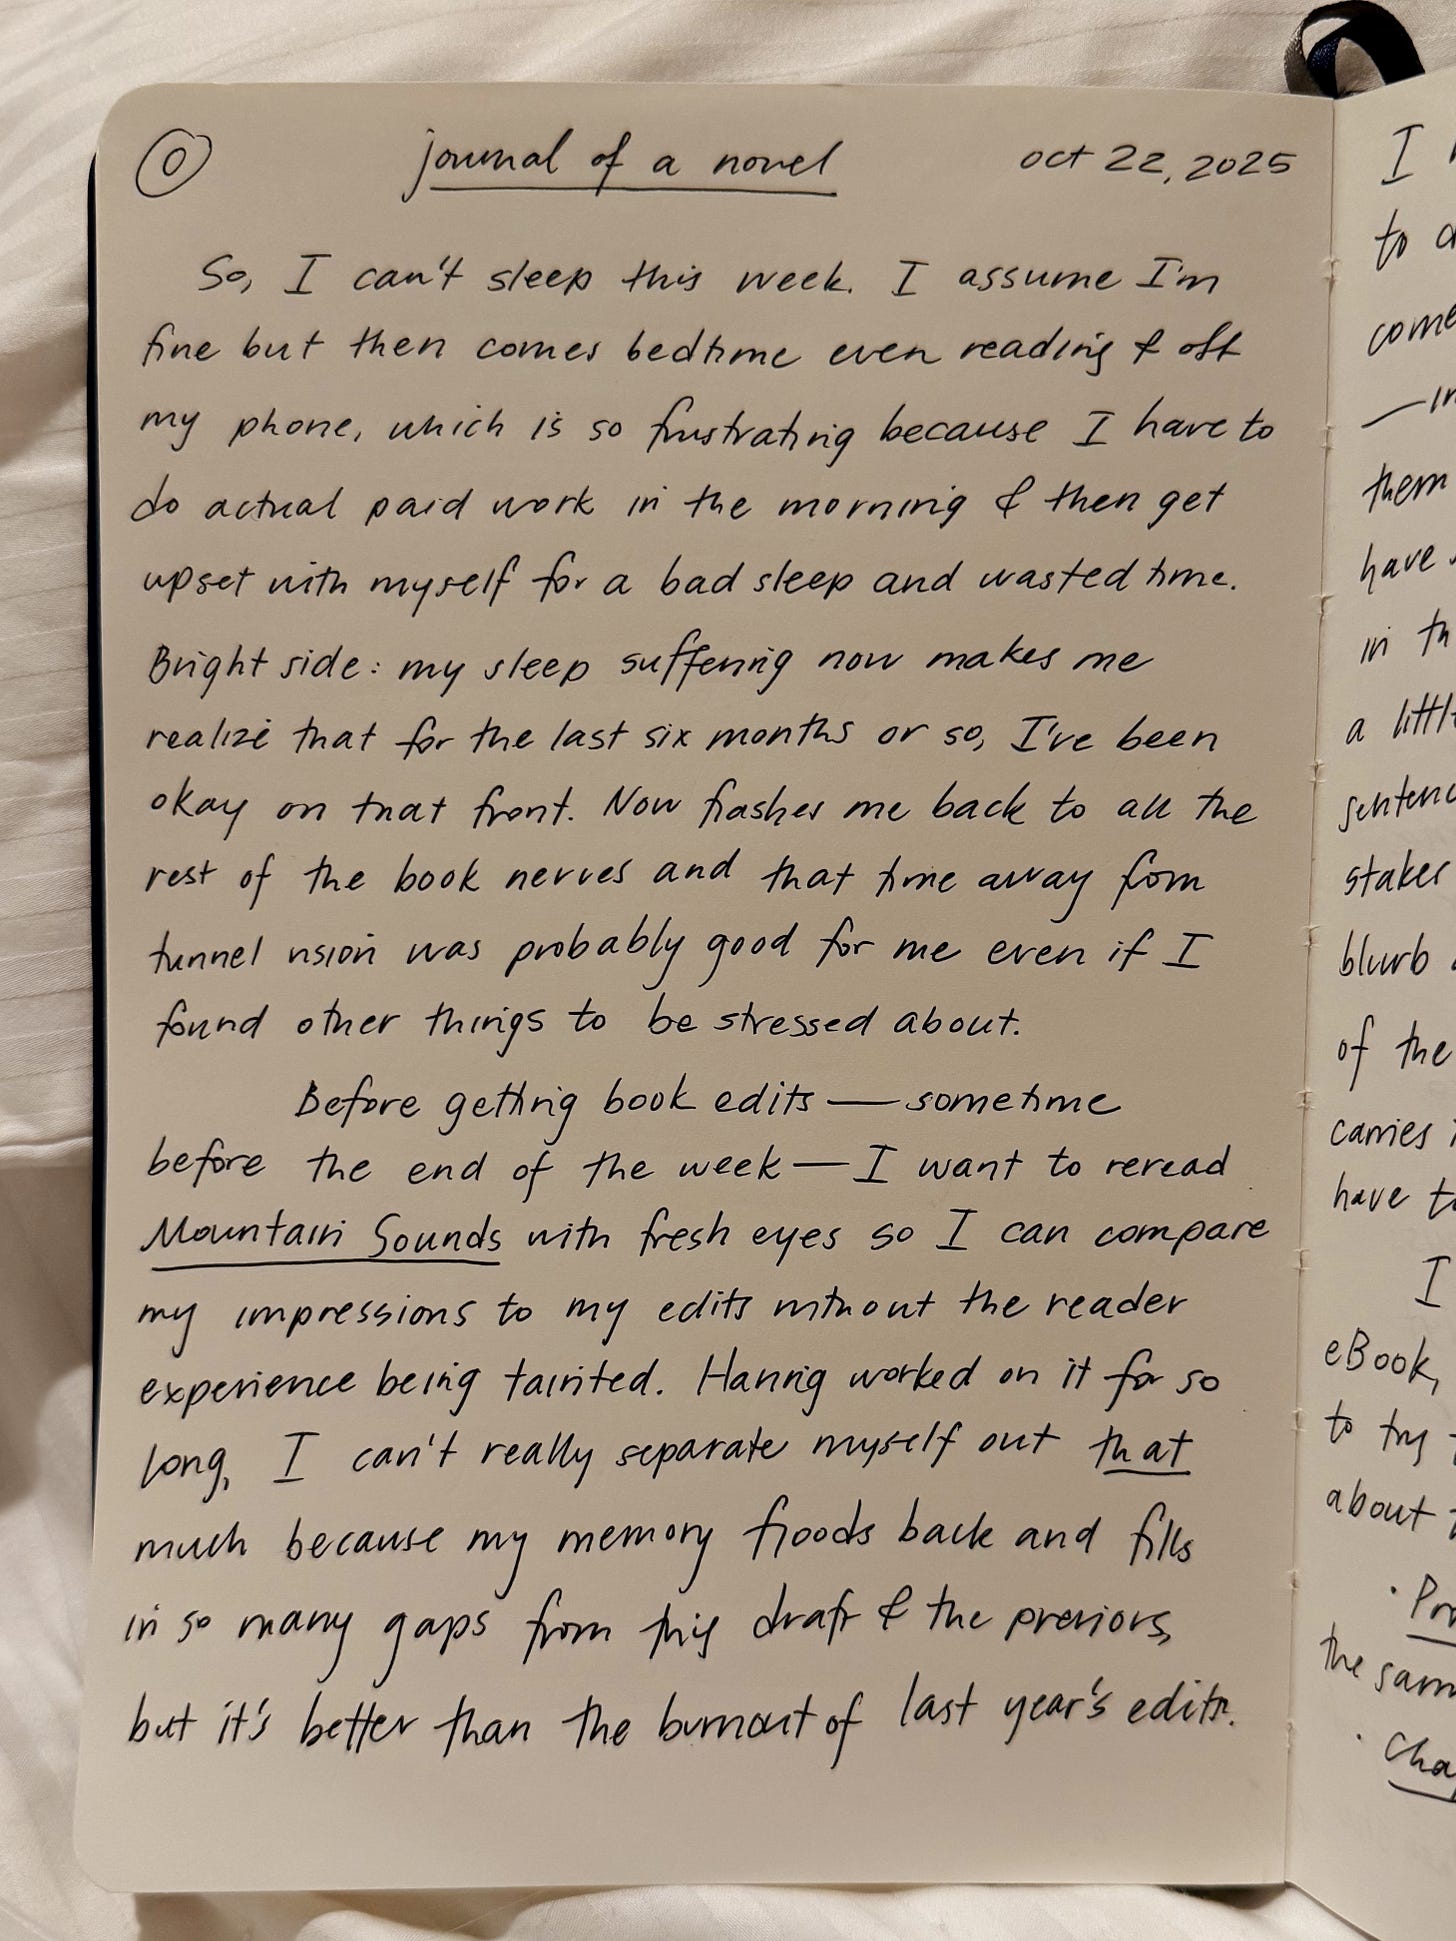 0 journal of a novel oct 22, 2025
So, I can't sleep this week. I assume I'm
fine but then comes bedtime even reading & off
my phone, which is so frustrating because I have to
do actual paid work in the morning & then get
upset with myself for a bad sleep and wasted time.
Bright side: my sleep suffering now makes me
realize that for the last six months or so, I've been
okay on that front. Now flashes me back to all the
rest of the book nerves and that time away from
tunnel vision was probably good for me even if I
found other things to be stressed about.
Before getting book edits — sometime
before the end of the week — I want to reread
Mountain Sounds with fresh eyes so I can compare
my impressions to my edits without the reader
experience being tainted. Having worked on it for so
long, I can't really separate myself out that
much because my memory floods back and fills
in so many gaps from this draft & the previous,
but it's better than the burnout of last year's edits.
I
to
come
—in
them
have
in th
a littl
sentenc
stakes
blurb
of the
carries
have t
I
eBook,
to try
about
· Pr
the sam
· Cha